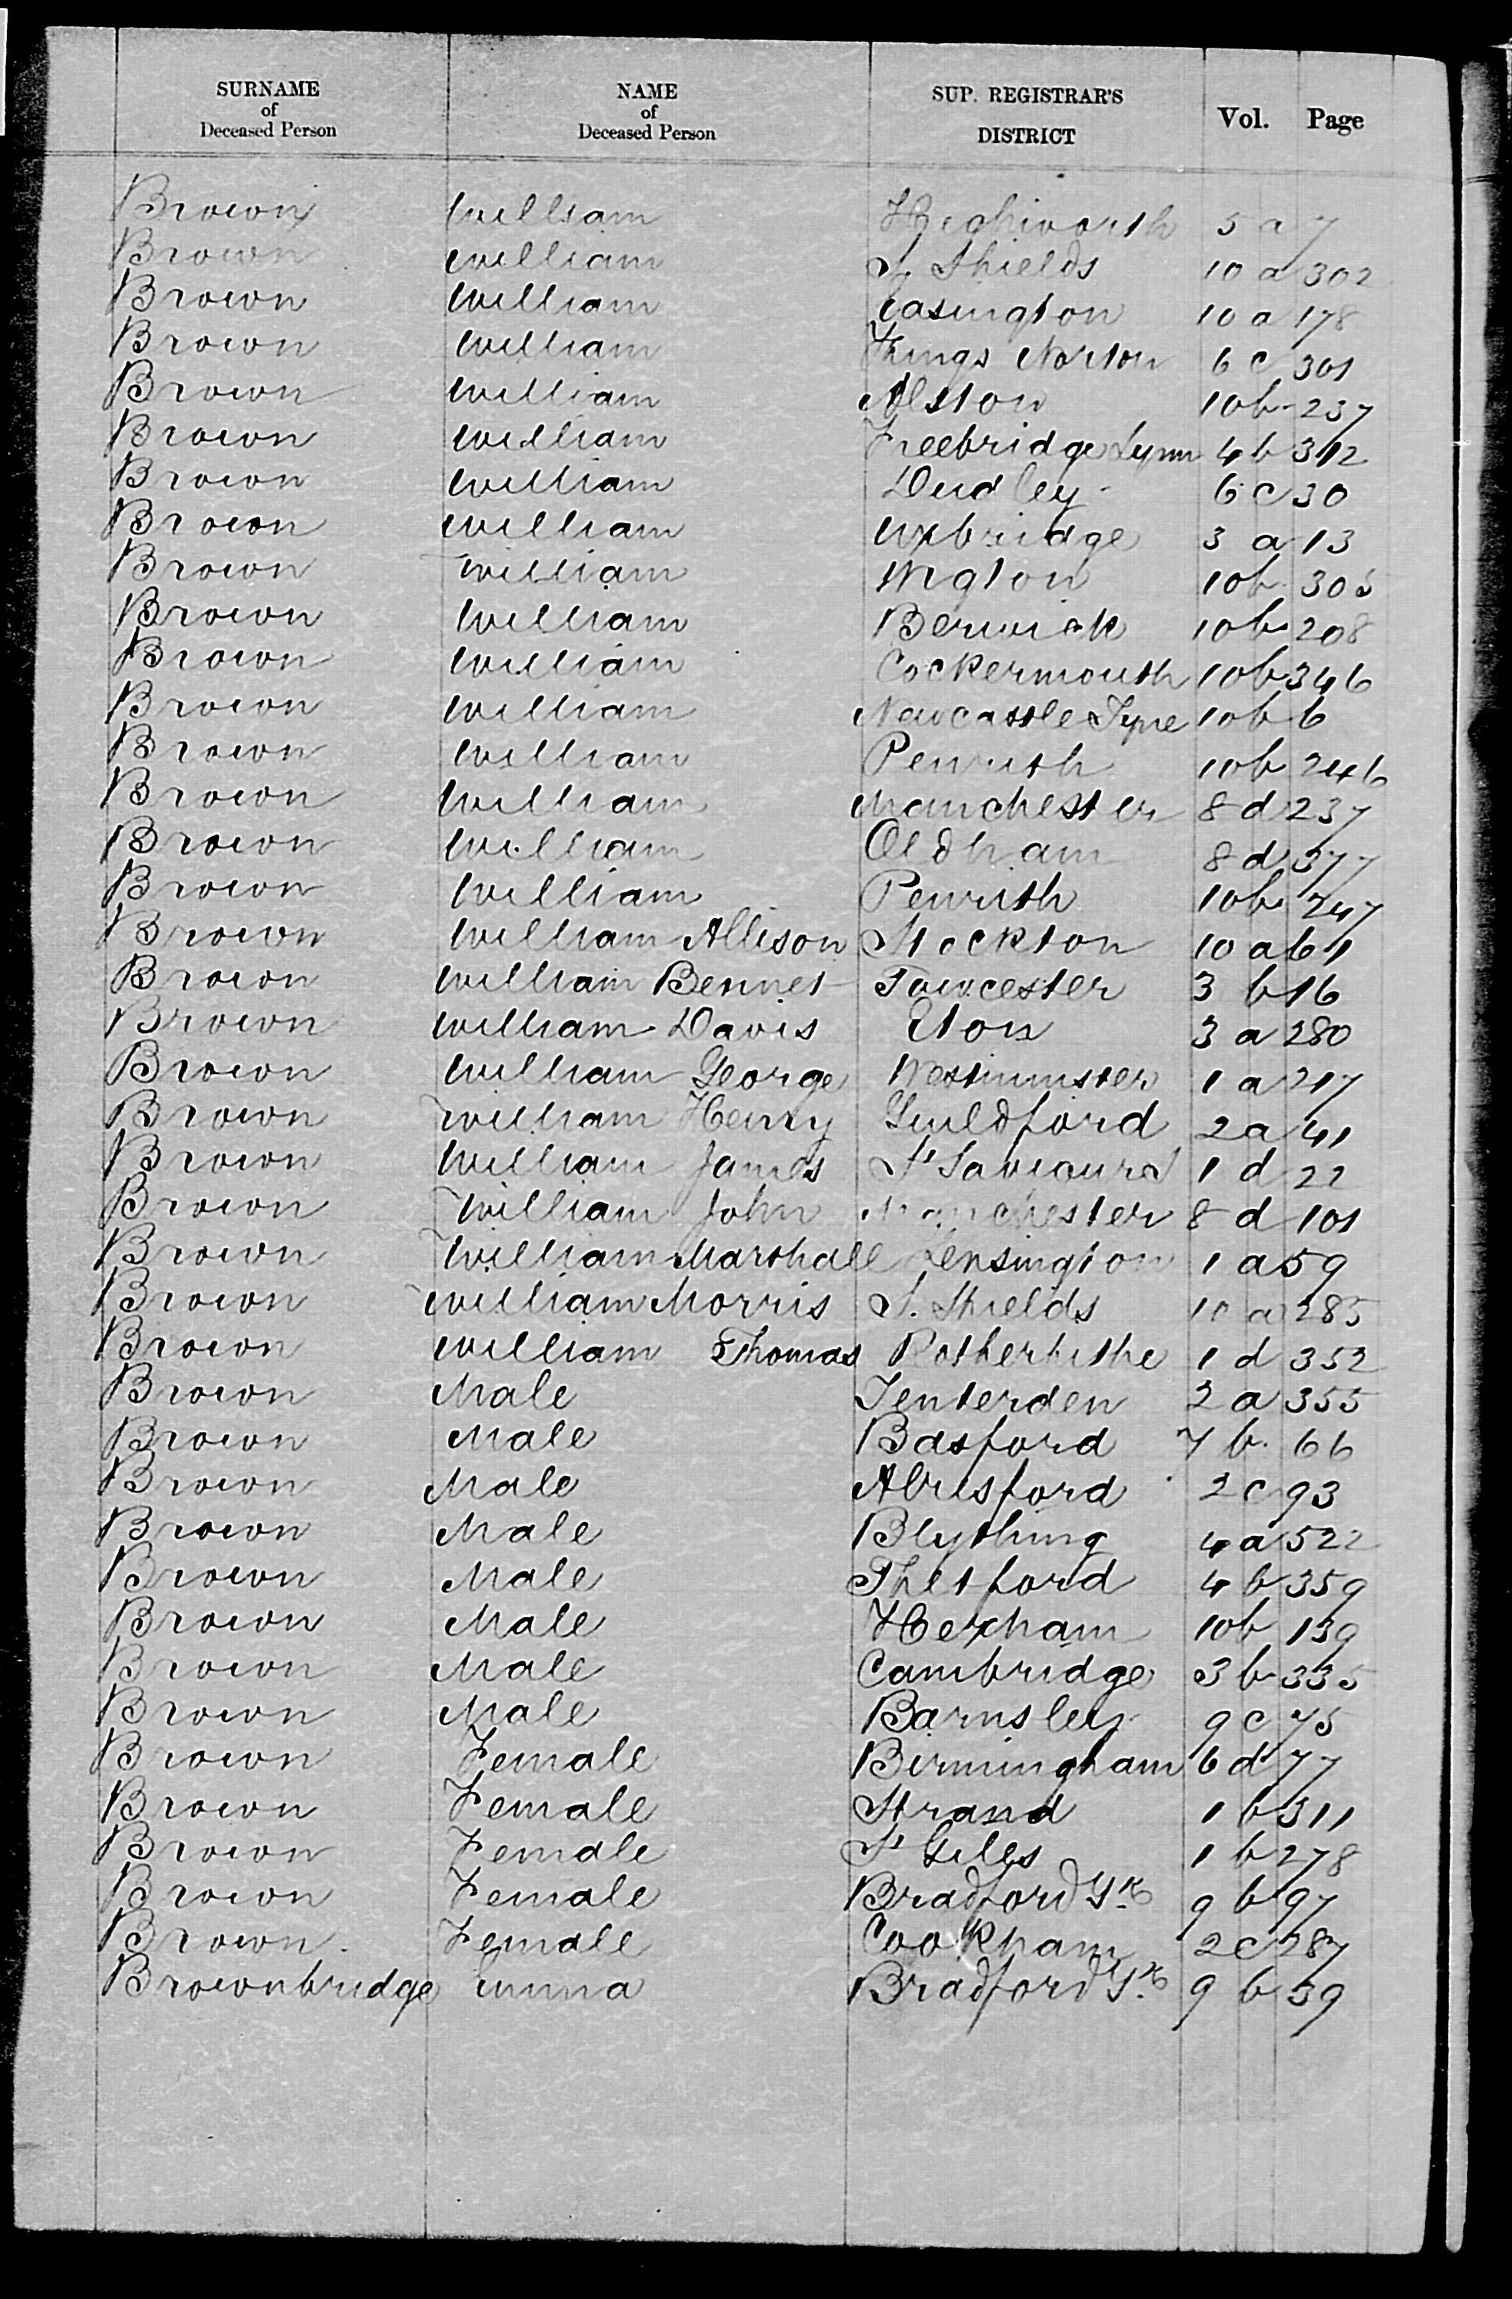 SURNAME of Deceased Person NAME of Deceased Person SUP. REGISTRAR'S DISTRICT Vol. Page
Brown William Highworth 5 a 7
Brown William S. Shields 10 a 302
Brown William Easington 10 a 178
Brown William Kings Norton 6 c 301
Brown William Alston 10b 237
Brown William Freebridge Lynn 4 b 312
Brown William Dudley 6 c 30
Brown William Uxbridge 3 a 13
Brown William Wigton 10b
Brown William Berwick 10b 208
Brown William Cockermouth 10b 346
Brown William Newcastle Tyne 10b 6
Brown William Penrith 10b 246
Brown William Manchester 8 d 237
Brown William Oldham 8 d 377
Brown William Penrith 10b 247
Brown William Allison Stockton 10 a 61
Brown William Bennet Towcester 3 b 16
Brown William Davis Eton 3 a 280
Brown William George Westminster 1 a 217
Brown William Henry Guildford 2 a 41
Brown William James St Saviours 1 d 22
Brown William John Manchester 8 d 101
Brown William Marshall Kensington 1 a 59
Brown William Morris S. Shields 10 a 285
Brown William Thomas Rotherhithe 1 d 352
Brown Male Tenterden 2 a 355
Brown Male Basford 7 b 66
Brown Male Alresford 2 c 93
Brown Male Blything 4 a 522
Brown Male Thetford 4 b 359
Brown Male Hexham 10b 139
Brown Male Cambridge 3 b 335
Brown Male Barnsley 9 c 75
Brown Female Birmingham 6 d 77
Brown Female Strand 1 b 311
Brown Female St Giles 1 b 278
Brown Female Bradford Yk 9 b 97
Brown Female Cookham 2 c 287
Brownbridge Emma Bradford Yk 9 b 59